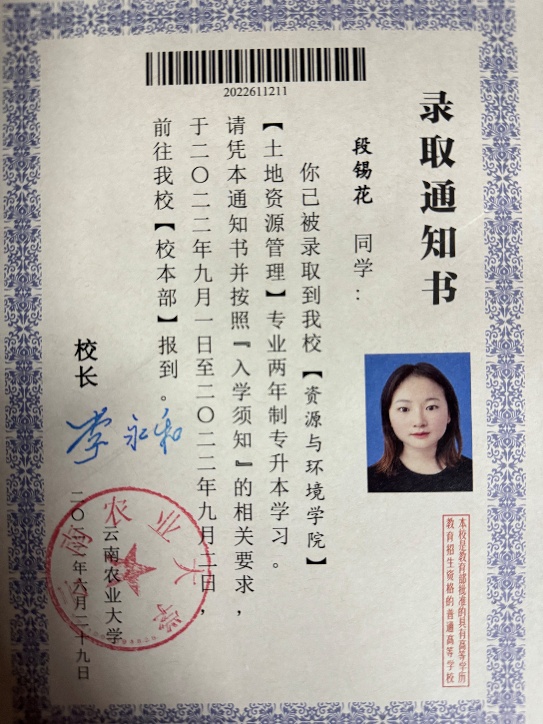 2022611211
录取通知书
段锡花 同学：
你已被录取到我校【资源与环境学院】
【土地资源管理】专业两年制专升本学习。
请凭本通知书并按照『入学须知』的相关要求，
于二〇二二年九月一日至二〇二二年九月二日，
前往我校【校本部】报到。
校长
李永和
云南农业大学
二〇二二年六月二十九日
本校是教育部批准的具有高等学历
教育招生资格的普通高等学校